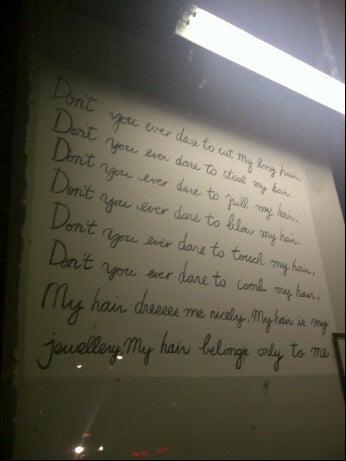 Don't you ever dare to cut my long hair,
Don't you ever dare to steal my hair
Don't you ever dare to pull my hair.
Don't you ever dare to blow my hair.
Don't you ever dare to touch my hair,
Don't you ever dare to comb my hair,
My hair dresses me nicely. My hair is my
jewellery. My hair belongs only to me.